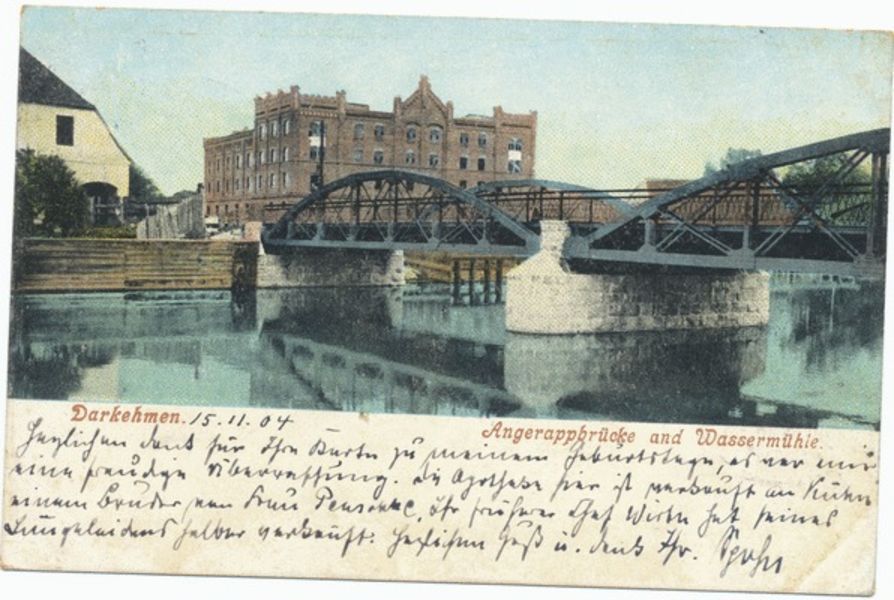 Darkehmen. 15.11.04
Angerappbrücke and Wassermühle.
Herzlichen Dank für Ihre Karte zu meinem Geburtstage, es war mir
eine freudige Überraschung. Die Apotheke hier ist verkauft an Kühn
einem Bruder von Frau, Ihr früherer Chef hat seines
Lungenleidens halber verkauft. Herzlichen Gruß u. Dank Ihr